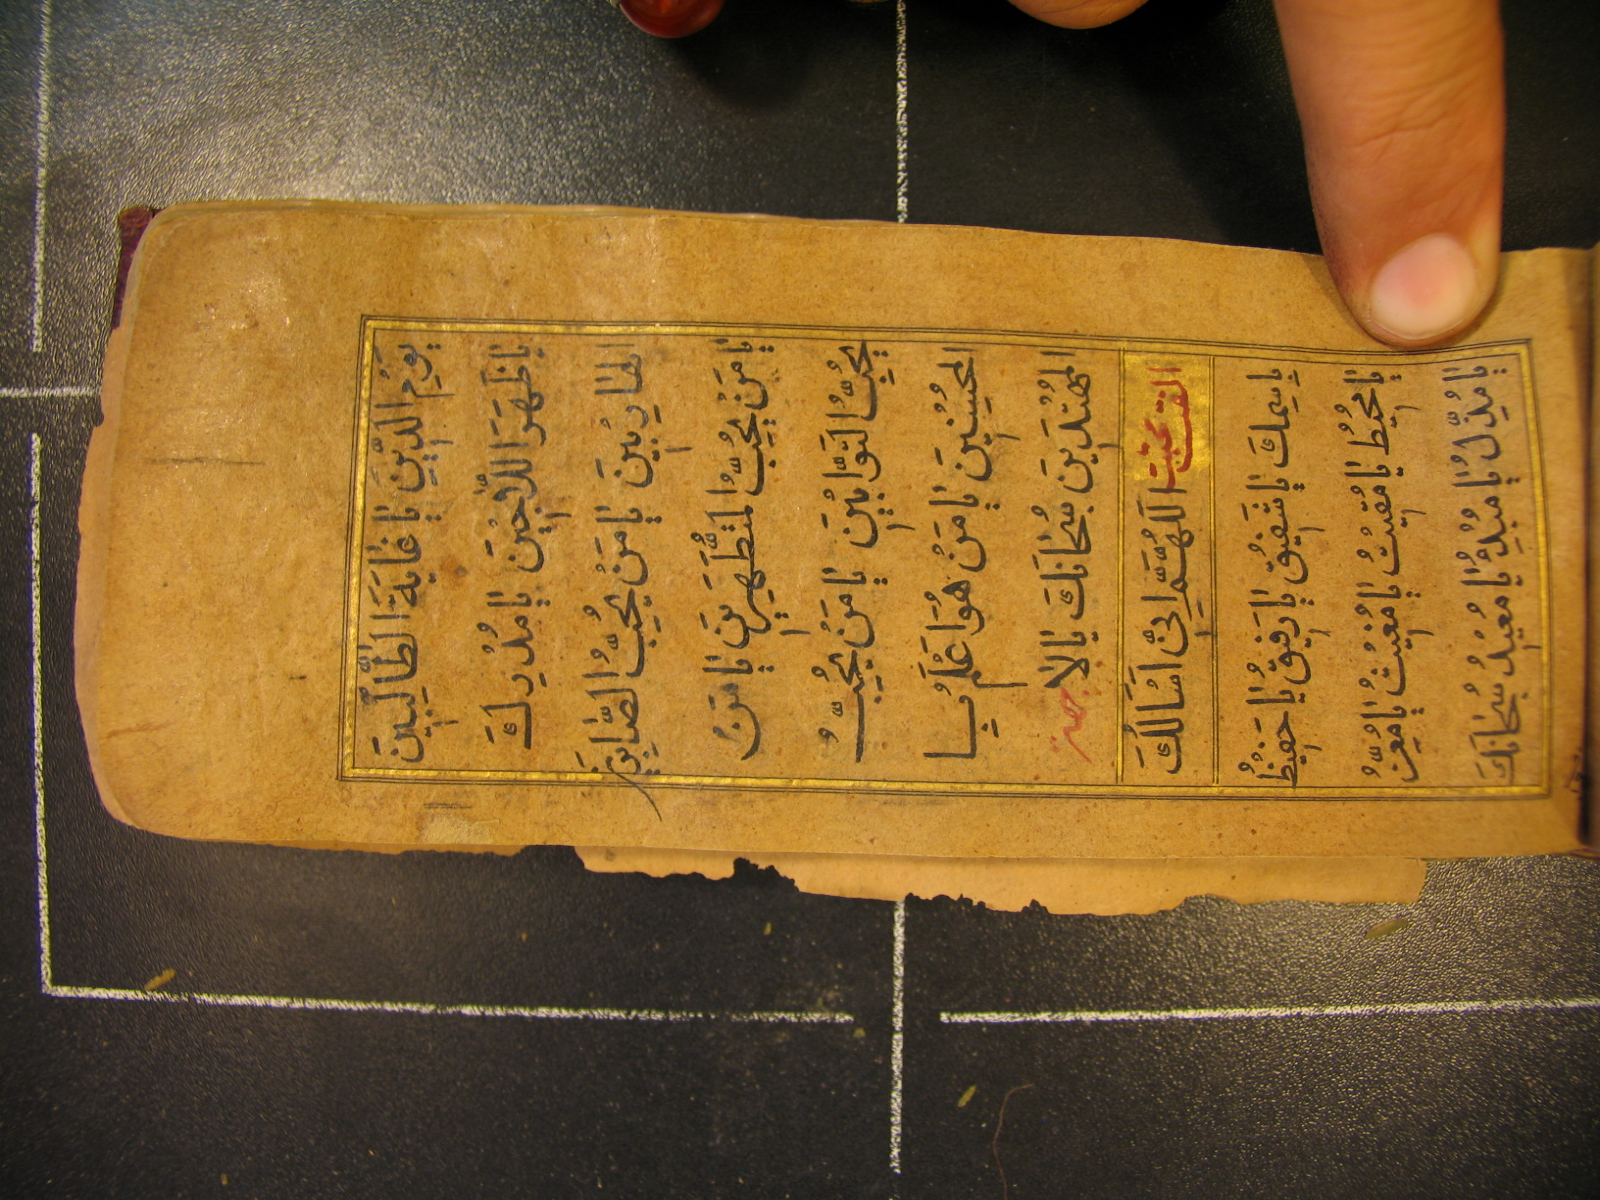 يَوْمِ الدِّينِ يَا غَايَةَ الطَّالِبِينَ
يَا ظَهَرَ اللَّاجِينَ يَا مُدْرِكَ
الهَارِبِينَ يَا مَنْ يُحِبُّ الصَّابِرِينَ
يَا مَنْ يُحِبُّ الْمُتَطَهِّرِينَ يَا مَنْ
يُحِبُّ التَّوَّابِينَ يَا مَنْ يُحِبُّ
الْمُحْسِنِينَ يَا مَنْ هُوَ اَعْلَمُ بِا
الْمُهْتَدِينَ سُبْحَانَكَ يَا لَا
اَللّٰهُمَّ اِنِّي اَسْاَلُكَ
بِاسْمِكَ يَا شَفِيقُ يَا رَفِيقُ يَا حَفِيظُ
يَا مُحِيطُ يَا مُقِيتُ يَا مُغِيثُ يَا مُعِزُّ
يَا مُذِلُّ يَا مُبْدِئُ يَا مُعِيدُ سُبْحَانَكَ